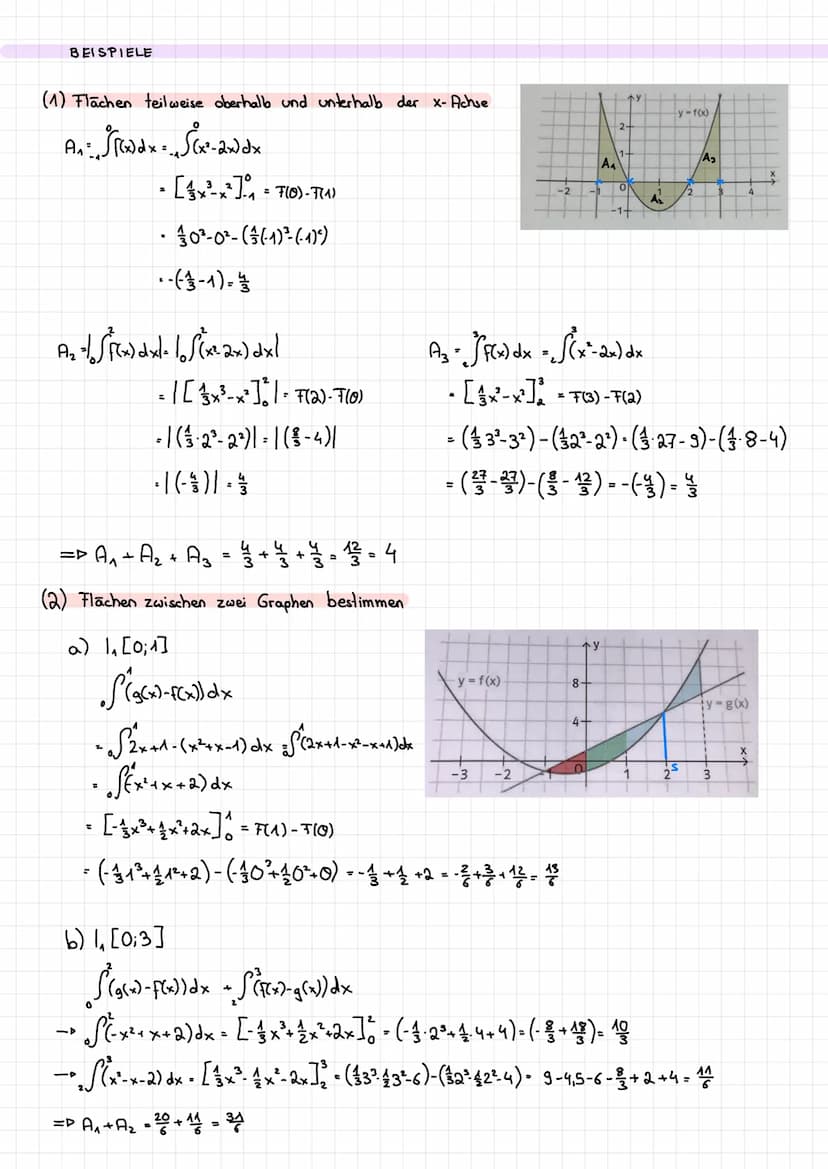 BEISPIELE
(1) Flächen teilweise oberhalb und unterhalb der x-Achse
A₁ = ₋₁∫⁰ f(x)dx = ₋₁∫⁰ (x²-2x)dx
= [1/3x³-x²]⁰₋₁ = F(0)-F(1)
= 1/3 0³-0²-(1/3(-1)³-(-1)²)
= -(-1/3-1) = 4/3
y
y = f(x)
2
1
A₁
A₃
x
-2 -1 0 1 2 3 4
A₂
-1
A₂ = |₀∫² f(x)dx| = |₀∫² (x²-2x)dx|
= |[1/3x³-x²]²₀| = F(2)-F(0)
= |(1/3·2³-2²)| = |(8/3-4)|
= |(-4/3)| = 4/3
A₃ = ₂∫³ f(x)dx = ₂∫³ (x²-2x)dx
= [1/3x³-x²]³₂ = F(3)-F(2)
= (1/3 3³-3²)-(1/3 2³-2²) = (1/3·27-9)-(1/3·8-4)
= (27/3-27/3)-(8/3-12/3) = -(-4/3) = 4/3
=> A₁ + A₂ + A₃ = 4/3 + 4/3 + 4/3 = 12/3 = 4
(2) Flächen zwischen zwei Graphen bestimmen
a) I₁ [0;1]
₀∫¹ (g(x)-f(x))dx
= ₀∫¹ 2x+1-(x²+x-1)dx = ₀∫¹ (2x+1-x²-x+1)dx
= ₀∫¹ (-x²+x+2)dx
= [-1/3x³+1/2x²+2x]¹₀ = F(1)-F(0)
= (-1/3 1³+1/2 1²+2)-(-1/3 0³+1/2 0²+0) = -1/3+1/2+2 = -2/6+3/6+12/6 = 13/6
y
y = f(x)
8
y = g(x)
4
x
-3 -2 0 1 2 S 3
b) I₁ [0;3]
₀∫² (g(x)-f(x))dx + ₂∫³ (f(x)-g(x))dx
→ ₀∫² (-x²+x+2)dx = [-1/3x³+1/2x²+2x]²₀ = (-1/3·2³+1/2·4+4) = (-8/3+18/3) = 10/3
→ ₂∫³ (x²-x-2)dx = [1/3x³-1/2x²-2x]³₂ = (1/3 3³-1/2 3²-6)-(1/3 2³-1/2 2²-4) = 9-4,5-6-8/3+2+4 = 11/6
=> A₁+A₂ = 20/6 + 11/6 = 31/6